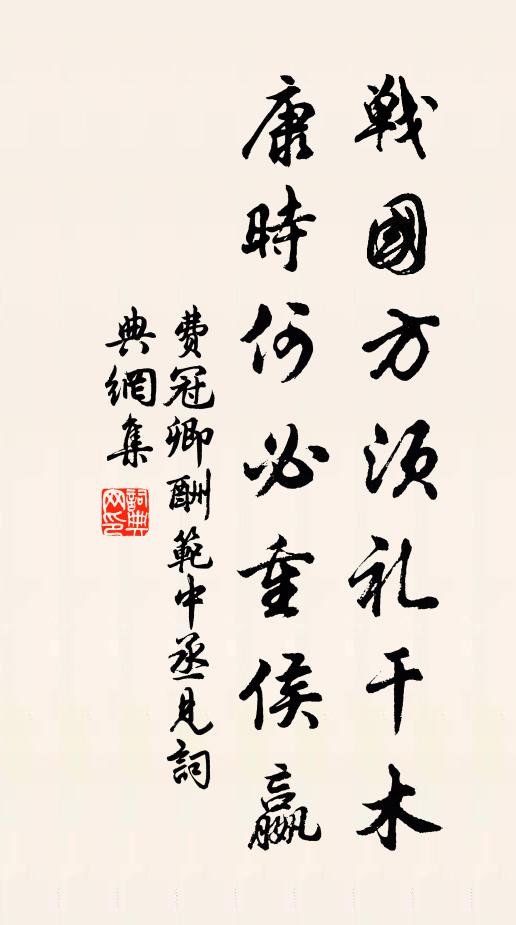 戰國方須礼干木
康時何必重侯嬴
費冠卿酬範中丞見詞
典網集
詞典網印